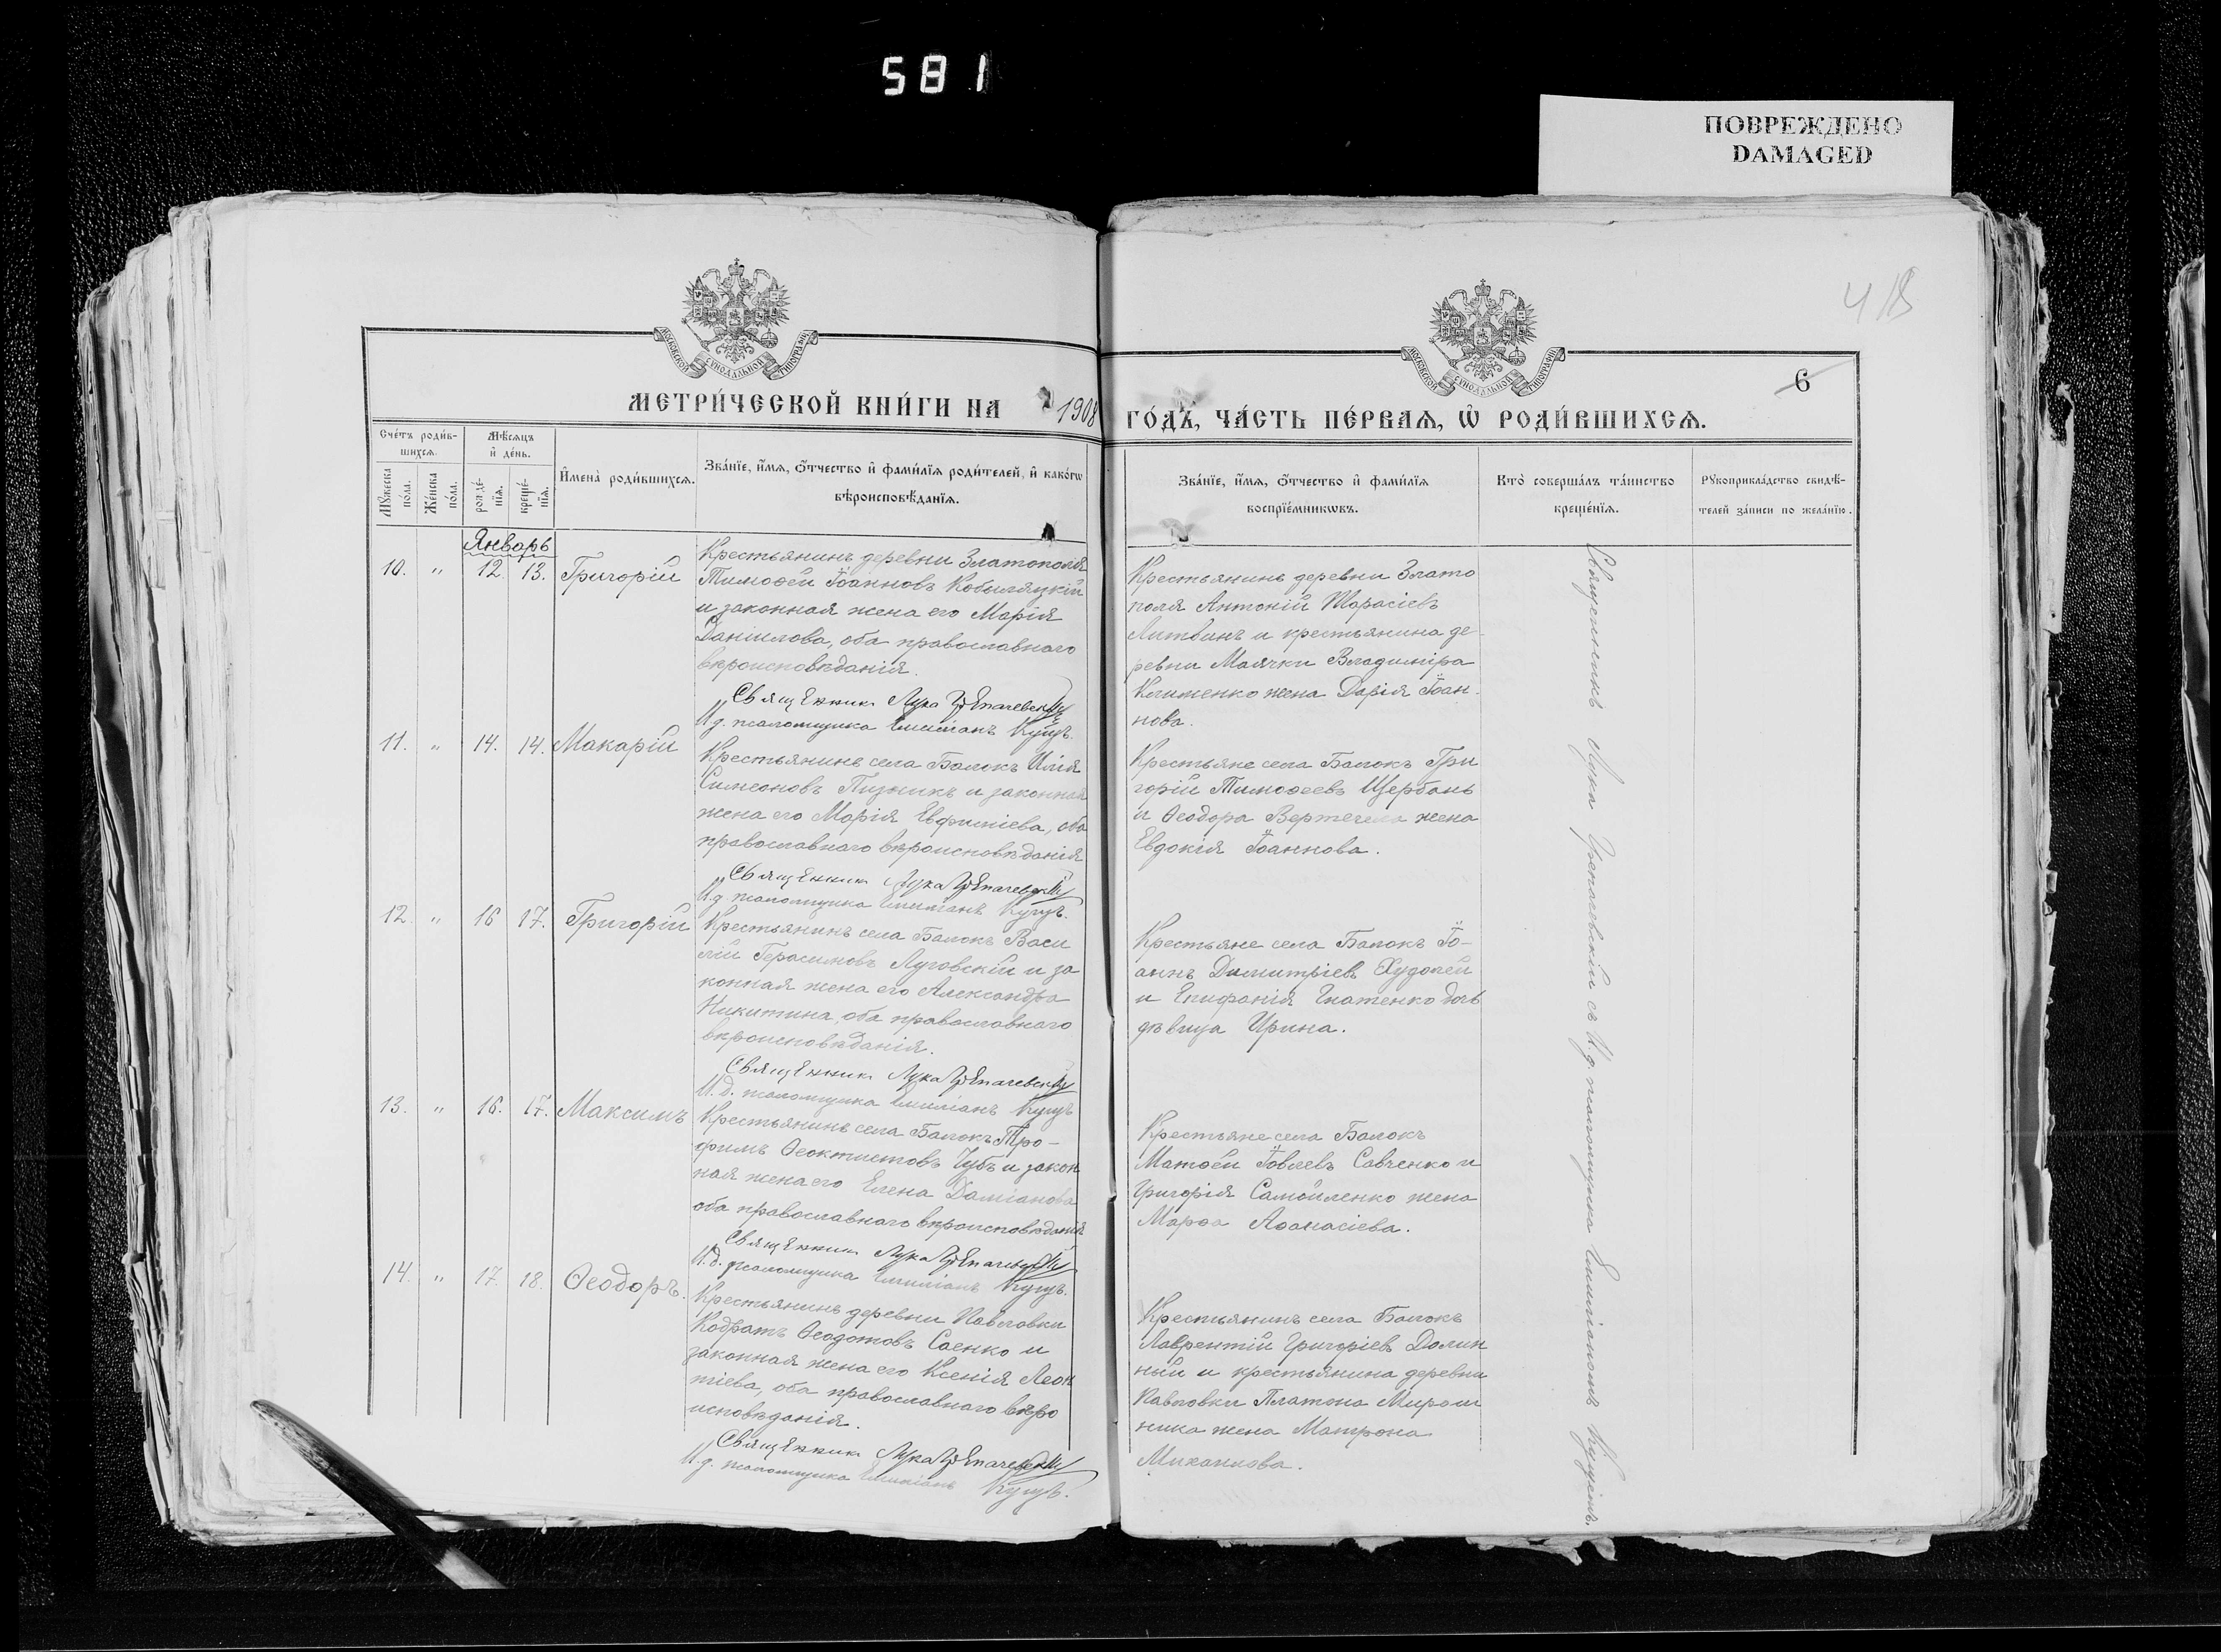 581
ПОВРЕЖДЕНО
DAMAGED
418
МОСКОВСКОЙ СѴНОДАЛЬНОЙ ТИПОГРАФІИ
МОСКОВСКОЙ СѴНОДАЛЬНОЙ ТИПОГРАФІИ
6
МЕТРИ́ЧЕСКОЙ КНИ́ГИ НА 1908 ГО́ДЪ, ЧА́СТЬ ПЕ́РВАѦ, Ѡ РОДИ́ВШИХСѦ.
Сче́тъ роди́в-
шихсѧ.
Мѣ́сѧцъ
и҆ де́нь.
Мꙋ́жеска
по́ла.
Же́нска
по́ла.
рожде́-
нїѧ.
креще́-
нїѧ.
И҆мена̀ роди́вшихсѧ.
Зва́нїе, и҆́мѧ, ѻ҆́тчество и҆ фами́лїѧ роди́телей, и҆ како́гѡ
вѣроисповѣ́данїѧ.
Зва́нїе, и҆́мѧ, ѻ҆́тчество и҆ фами́лїѧ
воспрїе́мникѡвъ.
Кто̀ соверша́лъ та́инство
креще́нїѧ.
Рꙋкоприкла́дство свидѣ́-
телей за́писи по жела́нїю.
Январь
10. " 12. 13. Григорій
Крестьянинъ деревни Златополя
Тимоѳей Іоанновъ Кобыляцкій
и законная жена его Марія
Даніилова, оба православнаго
вѣроисповѣданія.
Священникъ Лука
И.д. псаломщика Емиліанъ Куцъ.
Крестьянинъ деревни Злато
поля Антоній Тарасіевъ
Литвинъ и крестьянина де-
ревни Маячки Владиміра
Клименко жена Дарія Іоан-
нова.
11. " 14. 14. Макарій
Крестьянинъ села Балокъ Илія
Симеоновъ и законная
жена его Марія Евфиміева, оба
православнаго вѣроисповѣданія
Священникъ Лука
И.д. псаломщика Емиліанъ Куцъ.
Крестьяне села Балокъ Гри
горій Тимоѳеевъ Щербань
и Ѳеодора жена
Евдокія Іоаннова.
12. " 16 17. Григорій
Крестьянинъ села Балокъ Васи
лій Герасимовъ Луговскій и за
конная жена его Александра
Никитина, оба православнаго
вѣроисповѣданія.
Священникъ Лука
И.д. псаломщика Емиліанъ Куцъ
Крестьяне села Балокъ Іо-
аннъ Димитріевъ Худолей
и Епифанія Гнатенко дочь
дѣвица Ирина.
13. " 16. 17. Максимъ
Крестьянинъ села Балокъ Тро-
фимъ Ѳеоктистовъ Чубъ и закон
ная жена его Елена Даміанова
оба православнаго вѣроисповѣданія
Священникъ Лука
И.д. псаломщика Емиліанъ Куцъ.
Крестьяне села Балокъ
Матѳей Іовлевъ Савченко и
Григорія Самойленко жена
Марѳа Аѳанасіева.
14. " 17. 18. Ѳеодоръ.
Крестьянинъ деревни Павловки
Кодратъ Ѳеодотовъ Саенко и
законная жена его Ксенія Леон
тіева, оба православнаго вѣро
исповѣданія.
Священникъ Лука
И.д. псаломщика Емиліанъ Куцъ.
Крестьянинъ села Балокъ
Лаврентій Григоріевъ Долин
ный и крестьянина деревни
Павловки Платона Мирош
ника жена Матрона
Михаилова.
Священникъ Лука съ И.д. псаломщика Емиліаномъ